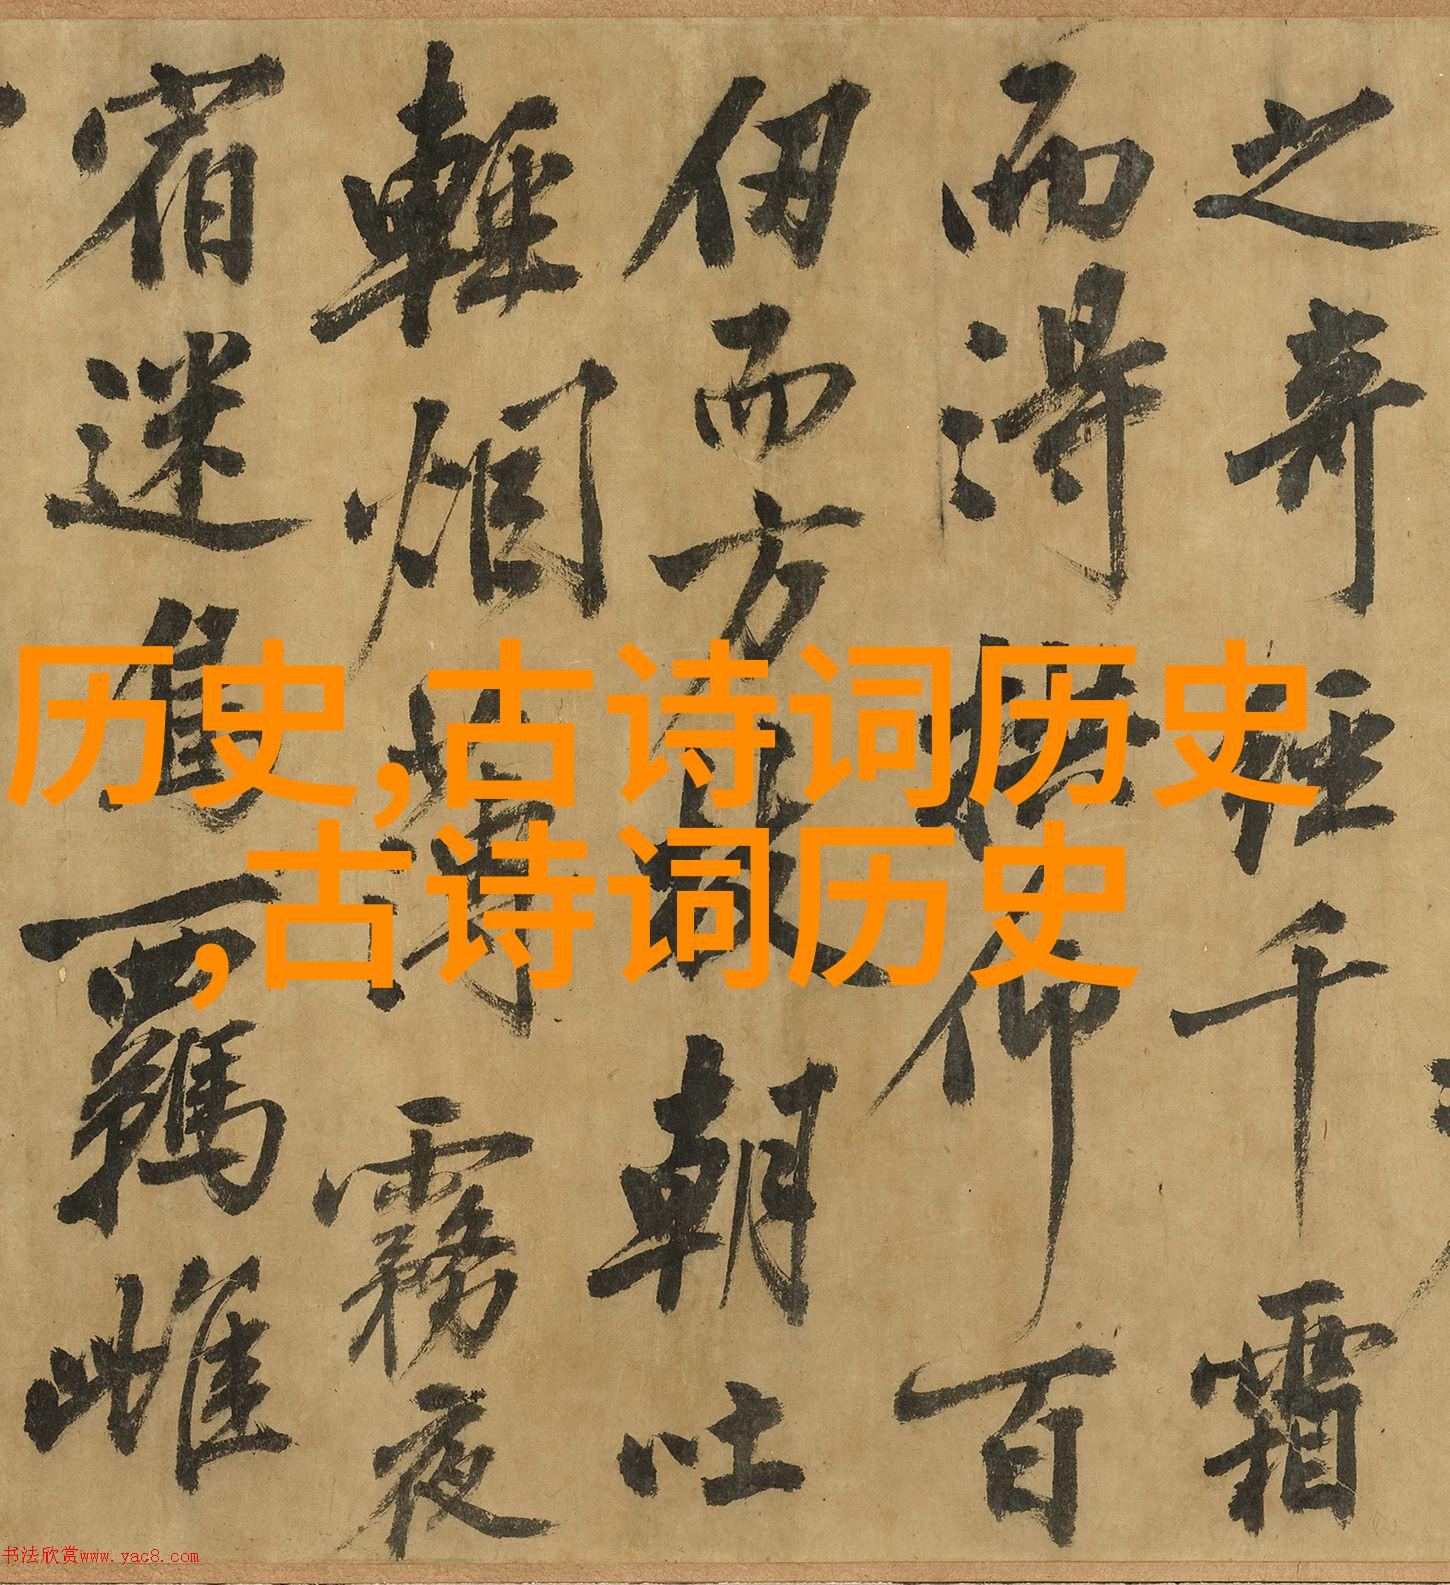 之奇經千霜
而得拱仰百
仞而方朝吐
輕烟薄霧夜
宿迷羈雌
历史,古诗词历史
,古诗词历史
书法欣赏www.yac8.com